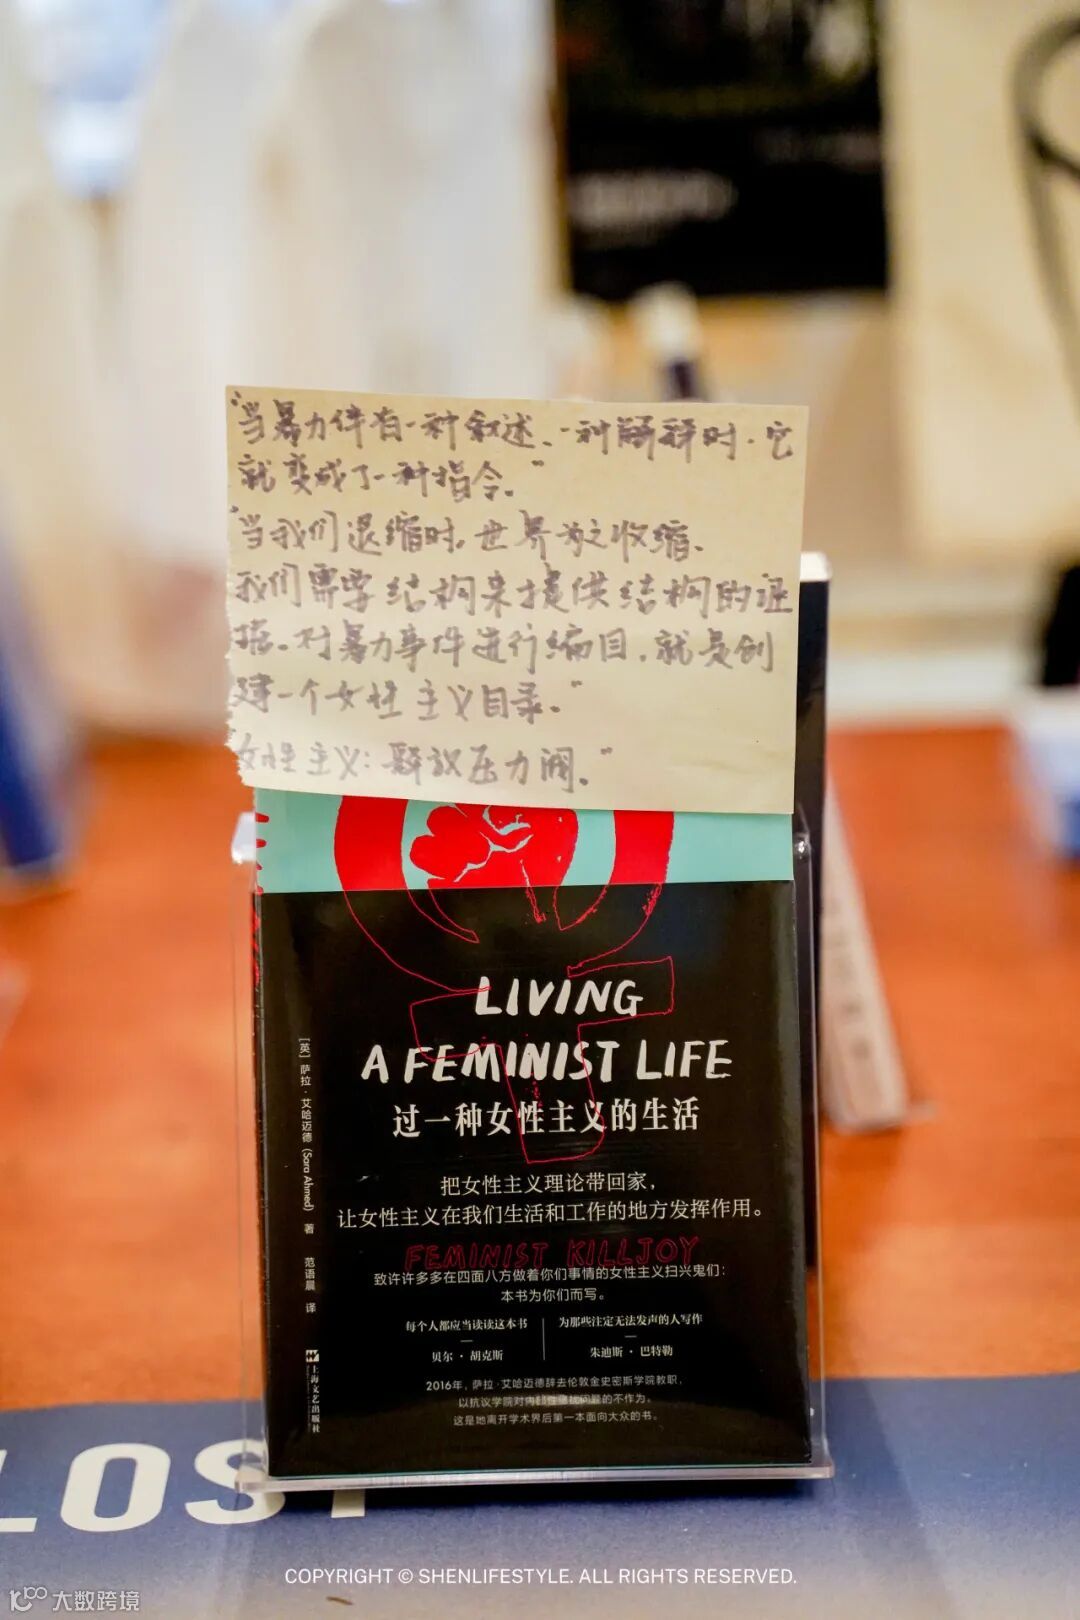 "当暴力伴有一种叙述、一种解释时，它
就变成了一种指令。"
"当我们退缩时，世界为之收缩。
我们需要结构来提供结构的证
据。对暴力事件进行编目，就是创
建一个女性主义目录。"
女性主义：释放压力阀。"
LIVING
A FEMINIST LIFE
过一种女性主义的生活
[英] 萨拉·艾哈迈德 (Sara Ahmed) 著
范语晨 译
上海文艺出版社
把女性主义理论带回家，
让女性主义在我们生活和工作的地方发挥作用。
FEMINIST KILLJOY
致许许多多在四面八方做着你们事情的女性主义扫兴鬼们：
本书为你们而写。
每个人都应当读读这本书
贝尔·胡克斯
为那些注定无法发声的人写作
朱迪斯·巴特勒
2016年，萨拉·艾哈迈德辞去伦敦金史密斯学院教职，
以抗议学院对内部性骚扰问题的不作为。
这是她离开学术界后第一本面向大众的书。
LOST
COPYRIGHT © SHENLIFESTYLE. ALL RIGHTS RESERVED.
大数跨境